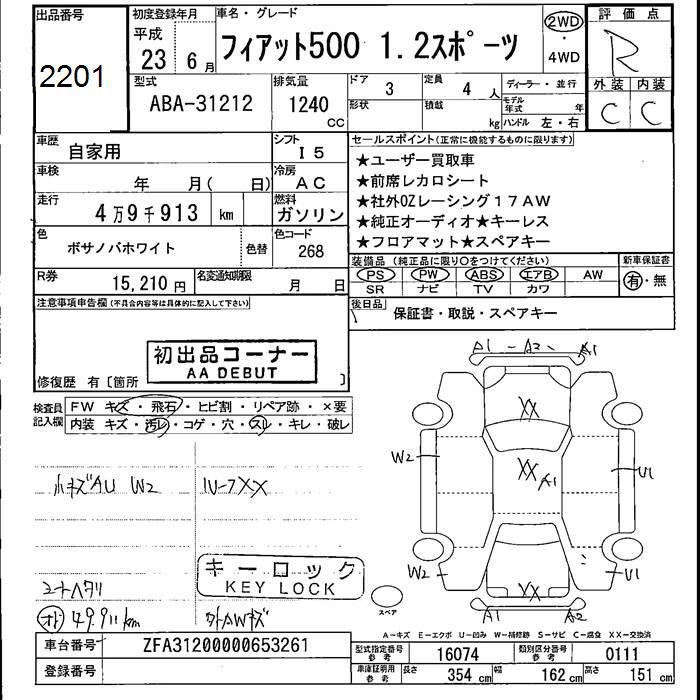 出品番号
2201
初度登録年月
平成
23 年 6 月
車名・グレード
フィアット500 1.2スポーツ
2WD
・
4WD
評価点
R
外装 内装
C C
型式
ABA-31212
排気量
1240
CC
ドア 3
形状
定員 4 人
積載 kg
ディーラー・並行
モデル年式 年
ハンドル 左・右
車歴
自家用
シフト
I 5
車検
年 月( 日)
冷房
AC
走行
4万9千913 km
燃料
ガソリン
色
ボサノバホワイト
色替
色コード
268
R券
15,210 円
名変通知期限
月 日
セールスポイント(正常に機能するものに限ります)
★ユーザー買取車
★前席レカロシート
★社外OZレーシング17AW
★純正オーディオ★キーレス
★フロアマット★スペアキー
装備品 (純正品に限り○をつけてください)
PS PW ABS エアB AW
SR ナビ TV カワ
新車保証書
有・無
後日品
保証書・取説・スペアキー
注意事項申告欄(不具合内容等は具体的に記入して下さい)
初出品コーナー
AA DEBUT
修復歴 有〔箇所 〕
検査員
記入欄
FW キズ・飛石・ヒビ割・リペア跡・×要
内装 キズ・汚レ・コゲ・穴・スレ・キレ・破レ
小キズAU W2
ルーフXX
キーロック
KEY LOCK
シートヘタリ
49.911km
外AWキズ
A1 - A2 - A1
XX
W2
XX A1
U1
W2
XX
U1
A1 A2
スペア
A-キズ E-エクボ U-凹み W-補修跡 S-サビ C-腐食 XX-交換済
車台番号
ZFA31200000653261
登録番号
型式指定番号
参考
16074
類別区分番号
参考
0111
車庫証明用
参考
長さ 354 cm 幅 162 cm 高さ 151 cm